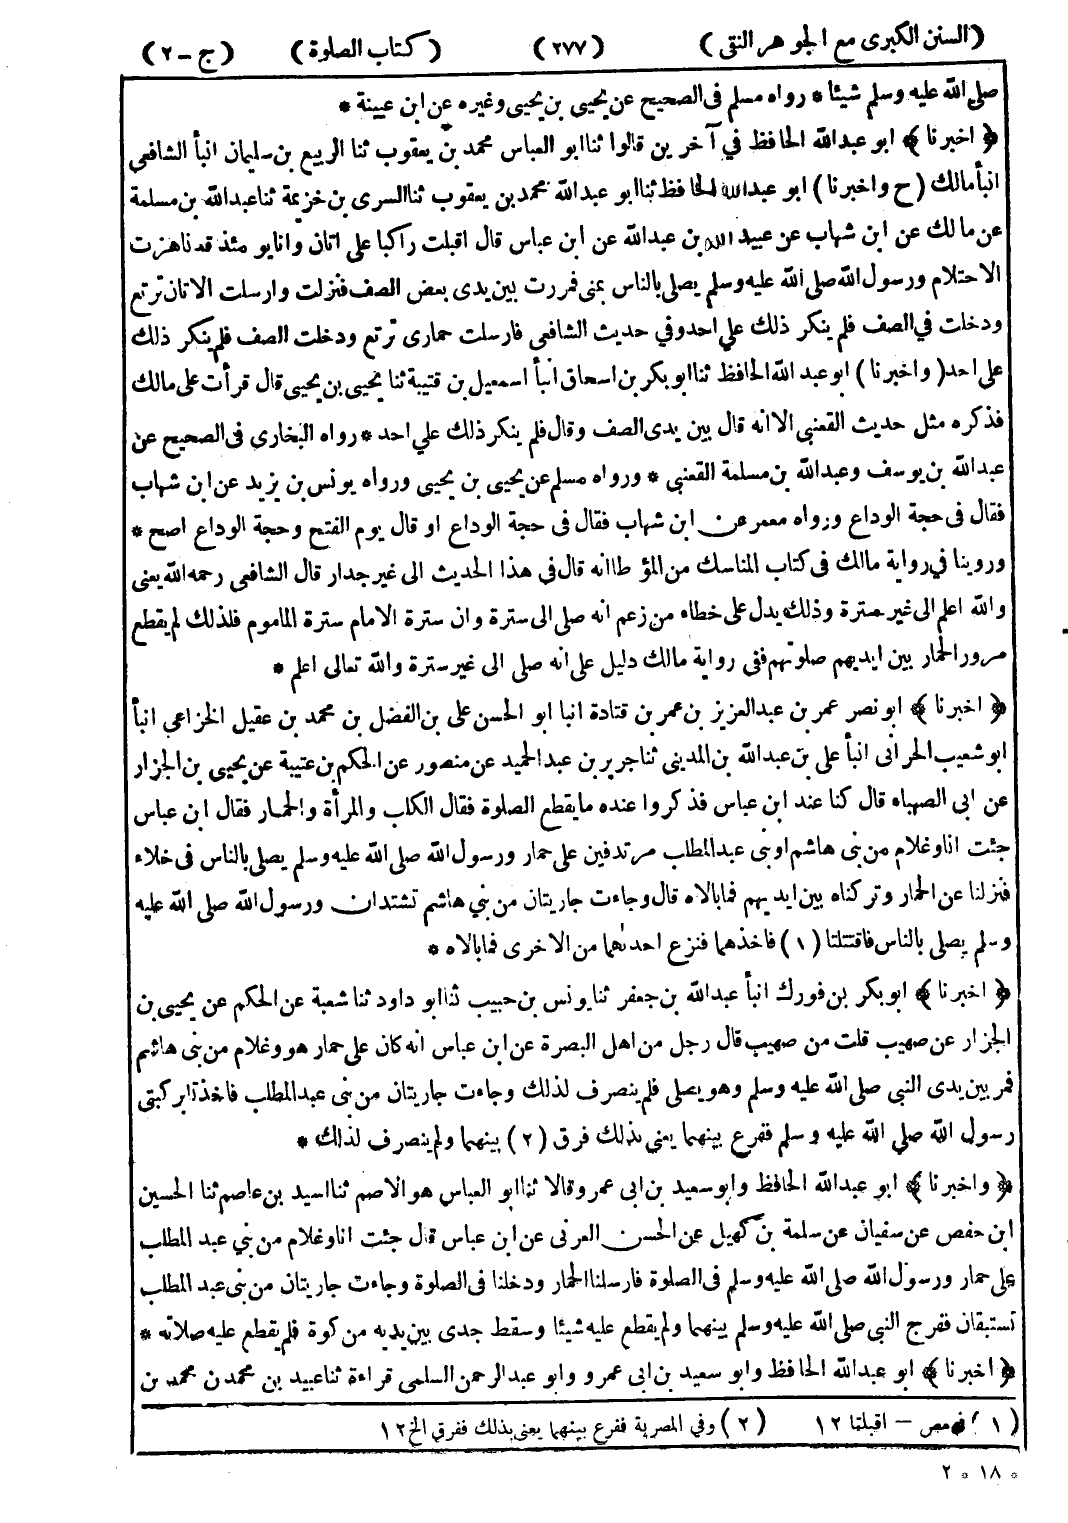 (السنن الكبرى مع الجوهر النقى) (٢٧٧) (كتاب الصلوة) (ج - ٢)
صلى الله عليه وسلم شيئا * رواه مسلم فى الصحيح عن يحيى بن يحيى وغيره عن ابن عيينة *
﴿ اخبرنا ﴾ ابو عبد الله الحافظ في آخرين قالوا ثنا ابو العباس محمد بن يعقوب ثنا الربيع بن سليمان انبأ الشافعى
انبأ مالك (ح واخبرنا) ابو عبد الله الحافظ ثنا ابو عبد الله محمد بن يعقوب ثنا السرى بن خزيمة ثنا عبد الله بن مسلمة
عن مالك عن ابن شهاب عن عبيد الله بن عبد الله عن ابن عباس قال اقبلت راكبا على اتان وانا يومئذ قد ناهزت
الاحتلام ورسول الله صلى الله عليه وسلم يصلى بالناس بمنى فمررت بين يدى بعض الصف فنزلت وارسلت الاتان ترتع
ودخلت في الصف فلم ينكر ذلك علي احد وفي حديث الشافعى فارسلت حمارى ترتع ودخلت الصف فلم ينكر ذلك
على احد (واخبرنا) ابو عبد الله الحافظ ثنا ابو بكر بن اسحاق انبأ اسمعيل بن قتيبة ثنا يحيى بن يحيى قال قرأت على مالك
فذكره مثل حديث القعنبى الا انه قال بين يدى الصف وقال فلم ينكر ذلك علي احد * رواه البخارى فى الصحيح عن
عبد الله بن يوسف وعبد الله بن مسلمة القعنبي * ورواه مسلم عن يحيى بن يحيى ورواه يونس بن يزيد عن ابن شهاب
فقال فى حجة الوداع ورواه معمر عن ابن شهاب فقال فى حجة الوداع او قال يوم الفتح وحجة الوداع اصح *
وروينا في رواية مالك فى كتاب المناسك من المؤطا انه قال فى هذا الحديث الى غير جدار قال الشافعى رحمه الله يعنى
والله اعلم الى غير سترة وذلك يدل على خطاء من زعم انه صلى الى سترة وان سترة الامام سترة الماموم فلذلك لم يقطع
مرور الحمار بين ايديهم صلوتهم ففى رواية مالك دليل على انه صلى الى غير سترة والله تعالى اعلم *
﴿ اخبرنا ﴾ ابو نصر عمر بن عبد العزيز بن عمر بن قتادة انبا ابو الحسن على بن الفضل بن محمد بن عقيل الخزاعى انبأ
ابو شعيب الحرانى انبأ على بن عبد الله بن المدينى ثنا جرير بن عبد الحميد عن منصور عن الحكم بن عتيبة عن يحيى بن الجزار
عن ابى الصهباء قال كنا عند ابن عباس فذكروا عنده ما يقطع الصلوة فقال الكلب والمرأة والحمار فقال ابن عباس
جئت انا وغلام من بنى هاشم او بنى عبد المطلب مرتدفين على حمار ورسول الله صلى الله عليه وسلم يصلى بالناس فى خلاء
فنزلنا عن الحمار وتركناه بين ايديهم فما بالاه قال وجاءت جاريتان من بني هاشم تشتدان ورسول الله صلى الله عليه
وسلم يصلى بالناس فاقتتلتا (١) فاخذهما فنزع احدٰهما من الاخرى فما بالاه *
﴿ اخبرنا ﴾ ابو بكر بن فورك انبأ عبد الله بن جعفر ثنا يونس بن حبيب ثنا ابو داود ثنا شعبة عن الحكم عن يحيى بن
الجزار عن صهيب قلت من صهيب قال رجل من اهل البصرة عن ابن عباس انه كان على حمار هو وغلام من بنى هاشم
فمر بين يدى النبي صلى الله عليه وسلم وهو يصلى فلم ينصرف لذلك وجاءت جاريتان من بنى عبد المطلب فاخذتا بركبتى
رسول الله صلى الله عليه وسلم ففرع بينهما يعنى بذلك فرق (٢) بينهما ولم ينصرف لذلك *
﴿ واخبرنا ﴾ ابو عبد الله الحافظ وابو سعيد بن ابى عمرو قالا ثنا ابو العباس هو الاصم ثنا اسيد بن عاصم ثنا الحسين
ابن حفص عن سفيان عن سلمة بن كهيل عن الحسن العرنى عن ابن عباس قال جئت انا وغلام من بني عبد المطلب
على حمار ورسول الله صلى الله عليه وسلم فى الصلوة فارسلنا الحمار ودخلنا فى الصلوة وجاءت جاريتان من بنى عبد المطلب
تستبقان ففرج النبي صلى الله عليه وسلم بينهما ولم يقطع عليه شيئا وسقط جدى بين يديه من كوة فلم يقطع عليه صلاته *
﴿ اخبرنا ﴾ ابو عبد الله الحافظ وابو سعيد بن ابى عمرو وابو عبد الرحمن السلمى قراءة ثنا عبيد بن محمد بن محمد بن
(١) فى مص - اقبلتا ١٢ (٢) وفي المصرية ففرع بينهما يعنى بذلك ففرق الخ ١٢
* ١٨ * ٢